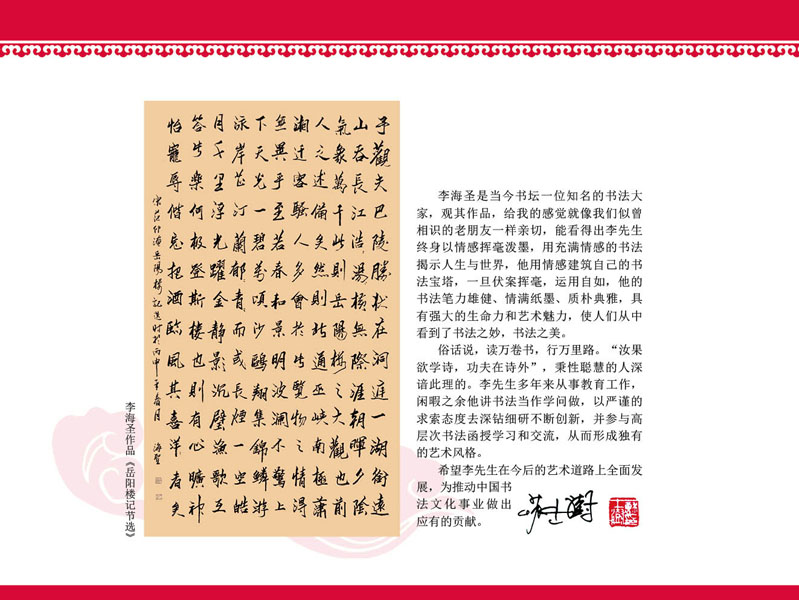 予觀夫巴陵勝狀在洞庭一湖銜遠
山吞長江浩々湯々橫無際涯朝暉夕陰
氣象萬千此則岳陽樓之大觀也前
人之述備矣然則北通巫峽南極瀟
湘迁客騷人多會於此覽物之情得
無異乎至若春和景明波瀾不驚上
下天光一碧萬頃沙鷗翔集錦鱗游
泳岸芷汀蘭郁々青々而或長煙一空皓
月千里浮光躍金靜影沉璧漁歌互
答此樂何極登斯樓也則有心曠神
怡寵辱偕忘把酒臨風其喜洋々者矣
宋范仲淹岳陽樓記選時於丙申年春月 海聖
李海圣作品《岳阳楼记节选》
李海圣是当今书坛一位知名的书法大
家，观其作品，给我的感觉就像我们似曾
相识的老朋友一样亲切，能看得出李先生
终身以情感挥毫泼墨，用充满情感的书法
揭示人生与世界，他用情感建筑自己的书
法宝塔，一旦伏案挥毫，运用自如，他的
书法笔力雄健、情满纸墨、质朴典雅，具
有强大的生命力和艺术魅力，使人们从中
看到了书法之妙，书法之美。
俗话说，读万卷书，行万里路。“汝果
欲学诗，功夫在诗外”，秉性聪慧的人深
谙此理的。李先生多年来从事教育工作，
闲暇之余他讲书法当作学问做，以严谨的
求索态度去深钻细研不断创新，并参与高
层次书法函授学习和交流，从而形成独有
的艺术风格。
希望李先生在今后的艺术道路上全面发
展，为推动中国书
法文化事业做出
应有的贡献。